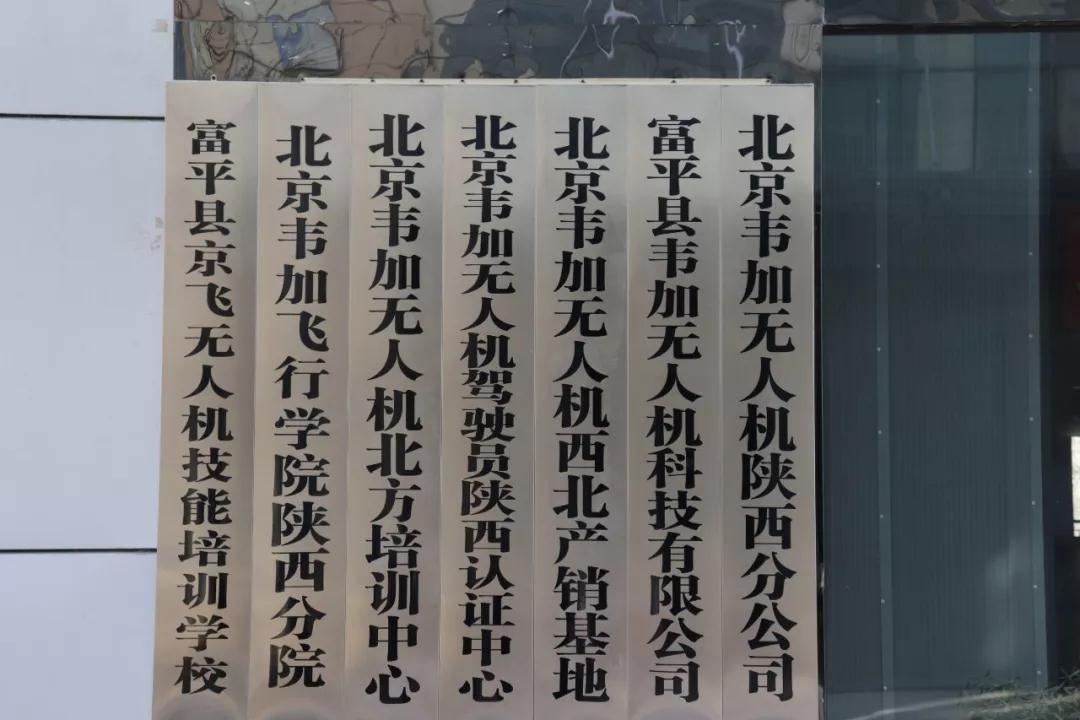 北京韦加无人机陕西分公司
富平县韦加无人机科技有限公司
北京韦加无人机西北产销基地
北京韦加无人机驾驶员陕西认证中心
北京韦加无人机北方培训中心
北京韦加飞行学院陕西分院
富平县京飞无人机技能培训学校